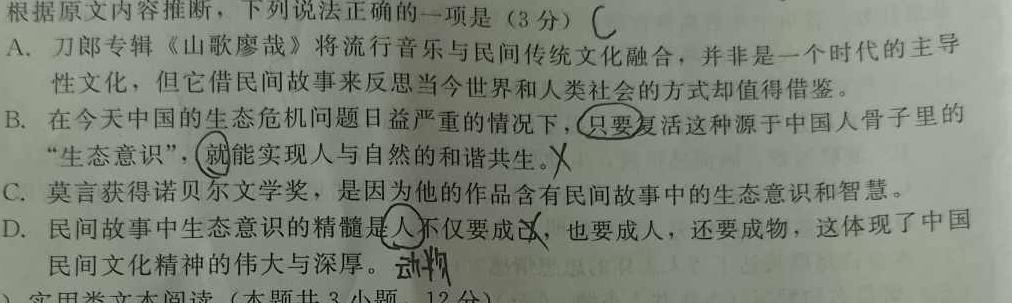 根据原文内容推断，下列说法正确的一项是（3分）C
A. 刀郎专辑《山歌廖哉》将流行音乐与民间传统文化融合，并非是一个时代的主导
性文化，但它借民间故事来反思当今世界和人类社会的方式却值得借鉴。
B. 在今天中国的生态危机问题日益严重的情况下，只要复活这种源于中国人骨子里的
“生态意识”，就能实现人与自然的和谐共生。X
C. 莫言获得诺贝尔文学奖，是因为他的作品含有民间故事中的生态意识和智慧。
D. 民间故事中生态意识的精髓是人不仅要成己，也要成人，还要成物，这体现了中国
民间文化精神的伟大与深厚。动物
）实用类文本阅读（本题共3小题，12分）